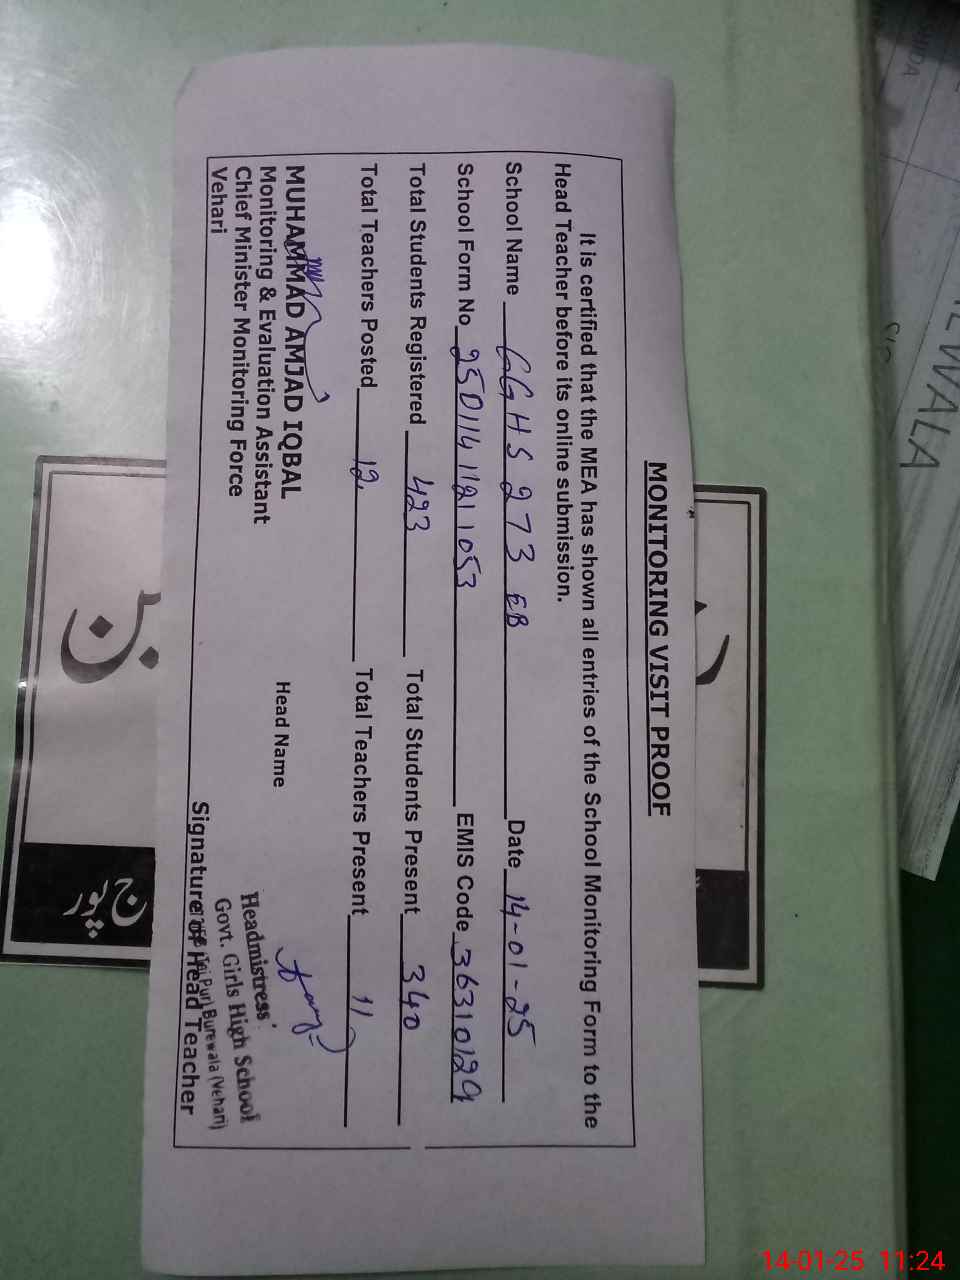 MONITORING VISIT PROOF
It is certified that the MEA has shown all entries of the School Monitoring Form to the
Head Teacher before its online submission.
School Name GGHS 273 EB Date 14-01-25
School Form No 25011411211053 EMIS Code 36310129
Total Students Registered 423 Total Students Present 340
Total Teachers Posted 12 Total Teachers Present 11
MUHAMMAD AMJAD IQBAL
Monitoring & Evaluation Assistant
Chief Minister Monitoring Force
Vehari
Head Name
Headmistress
Govt. Girls High School
Burewala (Vehari)
Signature of Head Teacher
EWALA
پور
14-01-25 11:24